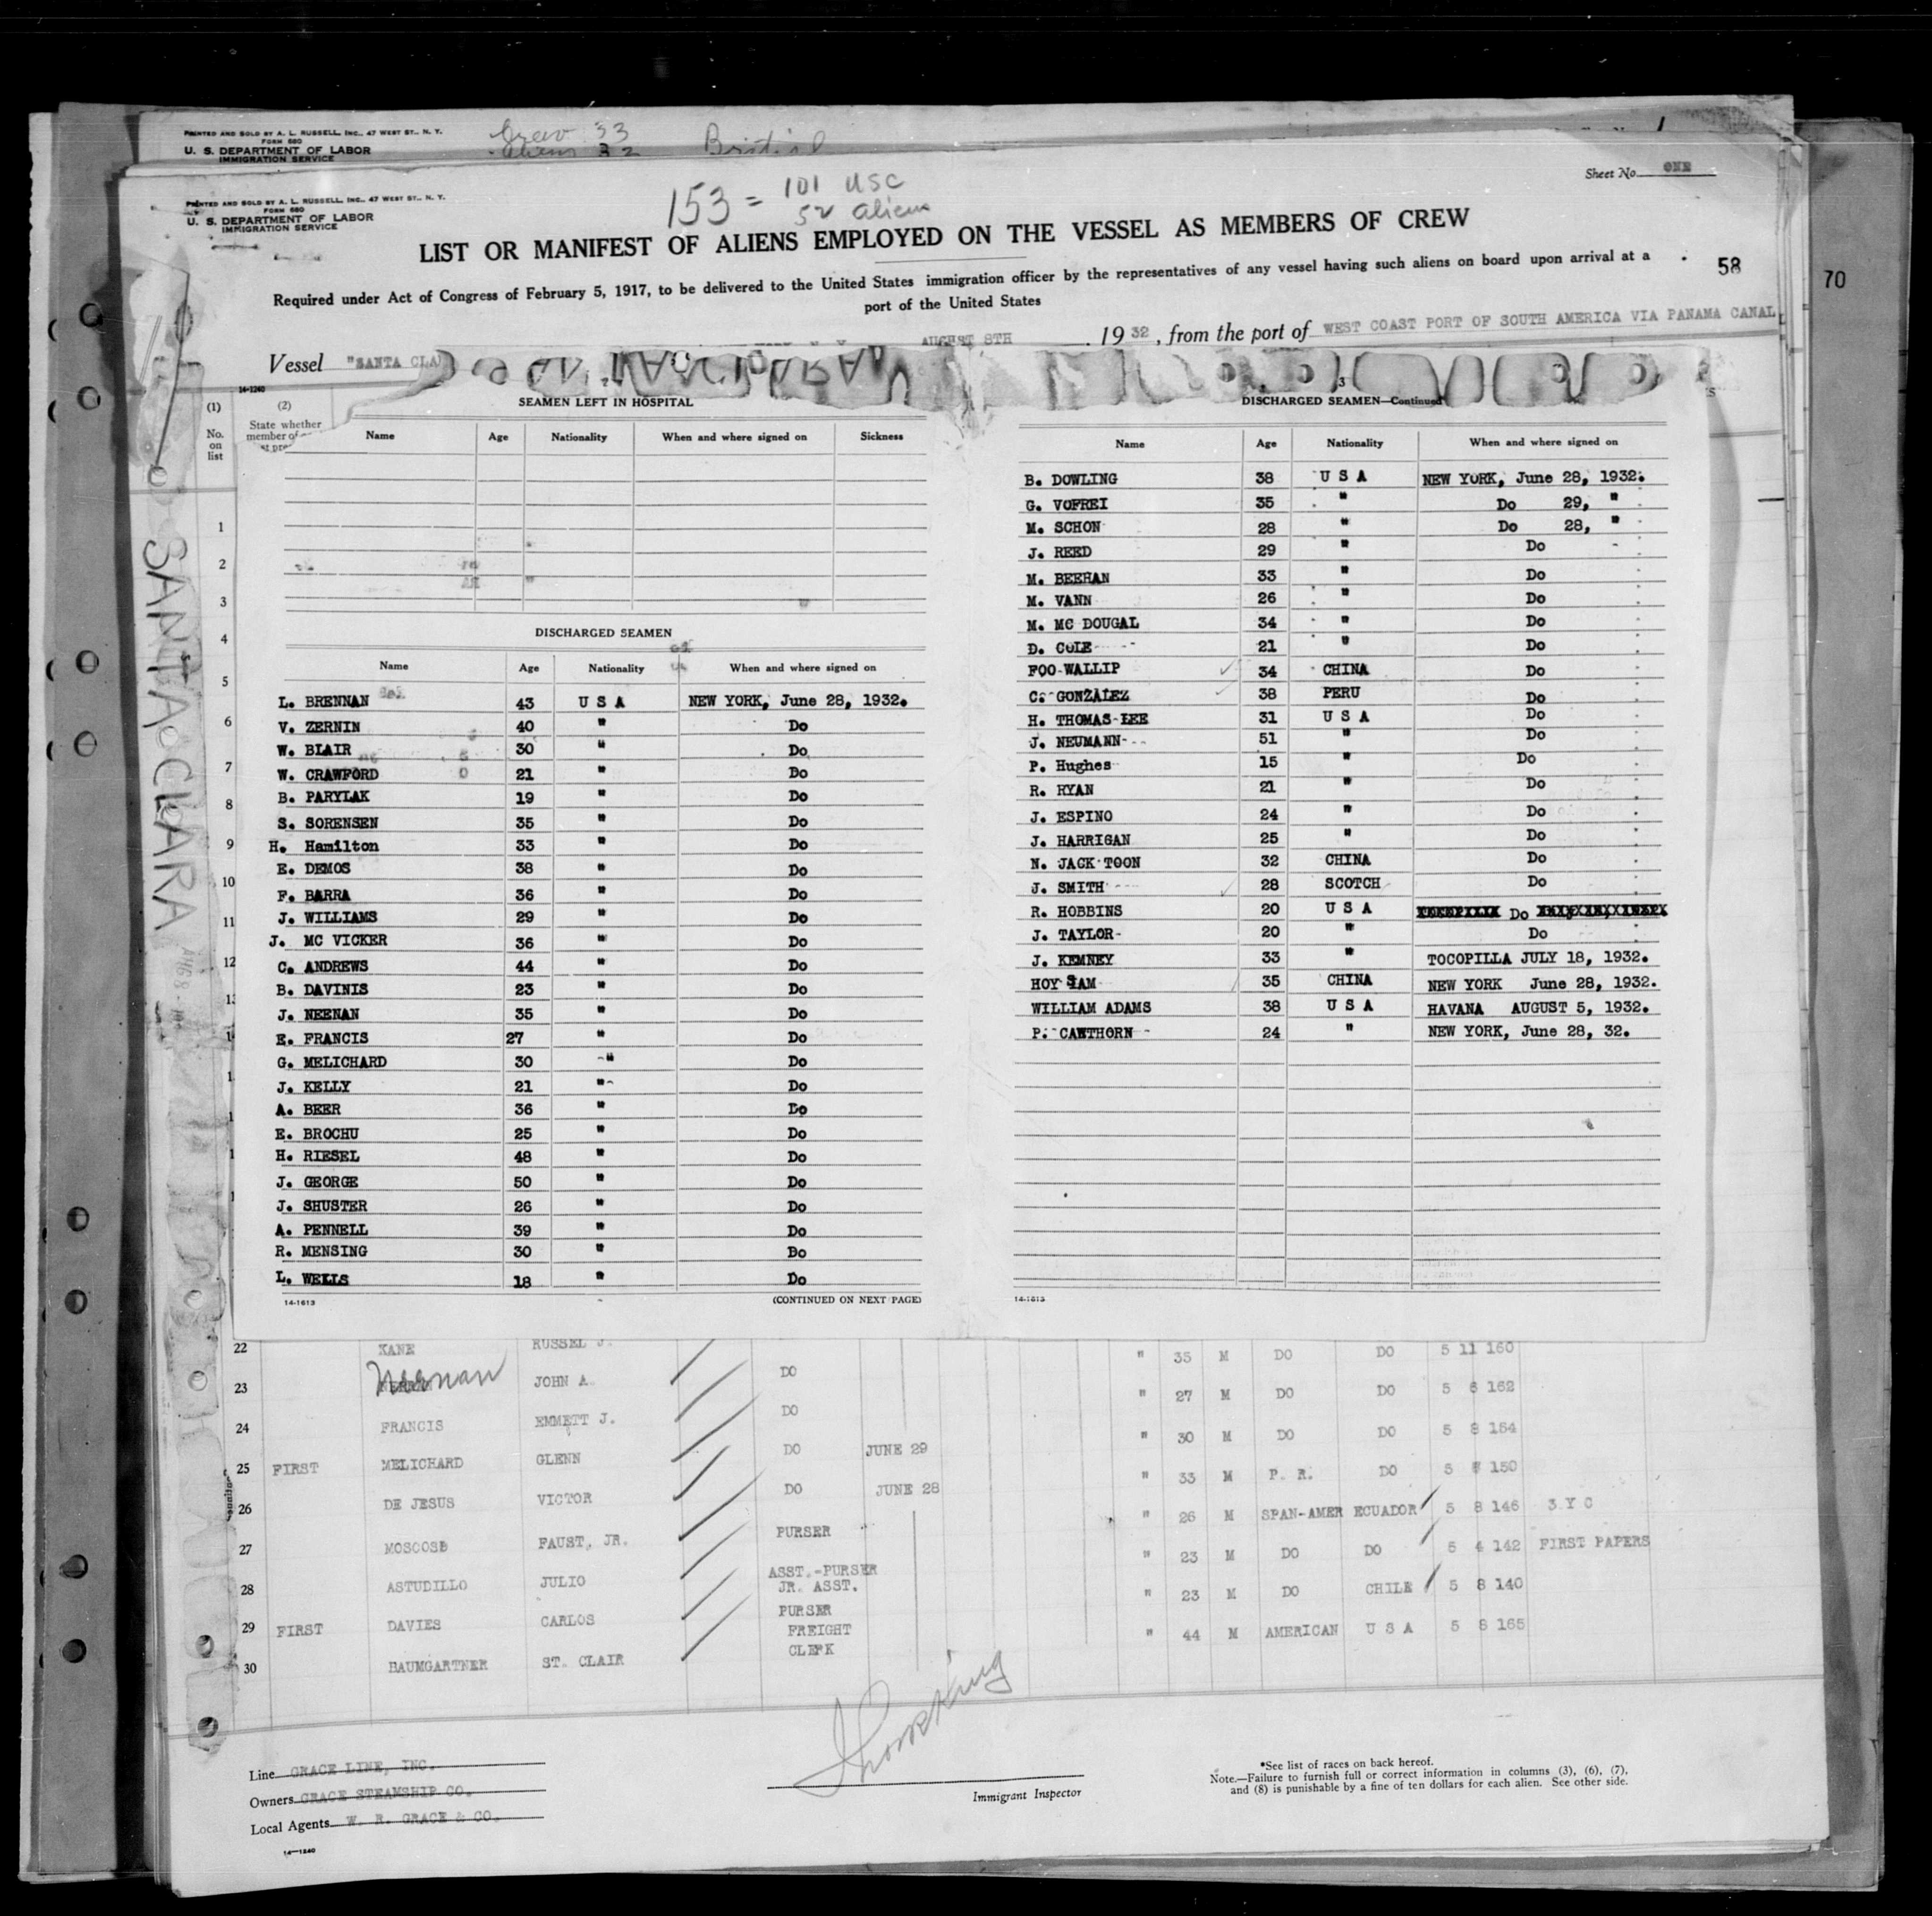 PRINTED AND SOLD BY A. L. RUSSELL, INC., 47 WEST ST., N. Y.
FORM 680
U. S. DEPARTMENT OF LABOR
IMMIGRATION SERVICE
Crew 33
Aliens 32
1
PRINTED AND SOLD BY A. L. RUSSELL, INC., 47 WEST ST., N. Y.
FORM 680
U. S. DEPARTMENT OF LABOR
IMMIGRATION SERVICE
153 = 101 USC
52 aliens
Sheet No. ONE
LIST OR MANIFEST OF ALIENS EMPLOYED ON THE VESSEL AS MEMBERS OF CREW
58
70
Required under Act of Congress of February 5, 1917, to be delivered to the United States immigration officer by the representatives of any vessel having such aliens on board upon arrival at a
port of the United States
Vessel "SANTA CLA
AUGUST 8TH , 1932, from the port of WEST COAST PORT OF SOUTH AMERICA VIA PANAMA CANAL
14-1240
(1) No. on list
(2) State whether member of
SANTA CLARA
2
SEAMEN LEFT IN HOSPITAL
Name Age Nationality When and where signed on Sickness
DISCHARGED SEAMEN
Name Age Nationality When and where signed on
L. BRENNAN 43 U S A NEW YORK, June 28, 1932.
V. ZERNIN 40 " Do
W. BLAIR 30 " Do
W. CRAWFORD 21 " Do
B. PARYLAK 19 " Do
S. SORENSEN 35 " Do
H. Hamilton 33 " Do
E. DEMOS 38 " Do
F. BARRA 36 " Do
J. WILLIAMS 29 " Do
J. MC VICKER 36 " Do
C. ANDREWS 44 " Do
B. DAVINIS 23 " Do
J. NEENAN 35 " Do
E. FRANCIS 27 " Do
G. MELICHARD 30 " Do
J. KELLY 21 " Do
A. BEER 36 " Do
E. BROCHU 25 " Do
H. RIESEL 48 " Do
J. GEORGE 50 " Do
J. SHUSTER 26 " Do
A. PENNELL 39 " Do
R. MENSING 30 " Do
L. WELLS 18 " Do
14-1613 (CONTINUED ON NEXT PAGE)
3
DISCHARGED SEAMEN—Continued
Name Age Nationality When and where signed on
B. DOWLING 38 U S A NEW YORK, June 28, 1932.
G. VOFREI 35 " Do 29, "
M. SCHON 28 " Do 28, "
J. REED 29 " Do
M. BEEHAN 33 " Do
M. VANN 26 " Do
M. MC DOUGAL 34 " Do
D. COLE 21 " Do
FOO WALLIP 34 CHINA Do
C. GONZALEZ 38 PERU Do
H. THOMAS LEE 31 U S A Do
J. NEUMANN 51 " Do
P. Hughes 15 " Do
R. RYAN 21 " Do
J. ESPINO 24 " Do
J. HARRIGAN 25 " Do
N. JACK TOON 32 CHINA Do
J. SMITH 28 SCOTCH Do
R. HOBBINS 20 U S A Do
J. TAYLOR 20 " Do
J. KEMNEY 33 " TOCOPILLA JULY 18, 1932.
HOY SAM 35 CHINA NEW YORK June 28, 1932.
WILLIAM ADAMS 38 U S A HAVANA AUGUST 5, 1932.
P. CAWTHORN 24 " NEW YORK, June 28, 32.
14-1613
1
2
3
4
5
6
7
8
9
10
11
12
22 KANE RUSSEL J. " 35 M DO DO 5 11 160
23 Neenan JOHN A. DO " 27 M DO DO 5 6 162
24 FRANCIS EMMETT J. DO " 30 M DO DO 5 8 154
25 FIRST MELICHARD GLENN DO JUNE 29 " 33 M P. R. DO 5 150
26 DE JESUS VICTOR DO JUNE 28 " 26 M SPAN-AMER ECUADOR 5 8 146 3 Y C
27 FAUST, JR. PURSER " 23 M DO DO 5 4 142 FIRST PAPERS
28 ASTUDILLO JULIO ASST.-PURSER " 23 M DO CHILE 5 8 140
JR. ASST.
29 FIRST DAVIES CARLOS PURSER " 44 M AMERICAN U S A 5 8 165
FREIGHT
30 BAUMGARTNER ST. CLAIR CLERK
Line GRACE LINE, INC.
Owners GRACE STEAMSHIP CO.
Local Agents W. R. GRACE & CO.
14-1240
Immigrant Inspector
*See list of races on back hereof.
Note.—Failure to furnish full or correct information in columns (3), (6), (7),
and (8) is punishable by a fine of ten dollars for each alien. See other side.